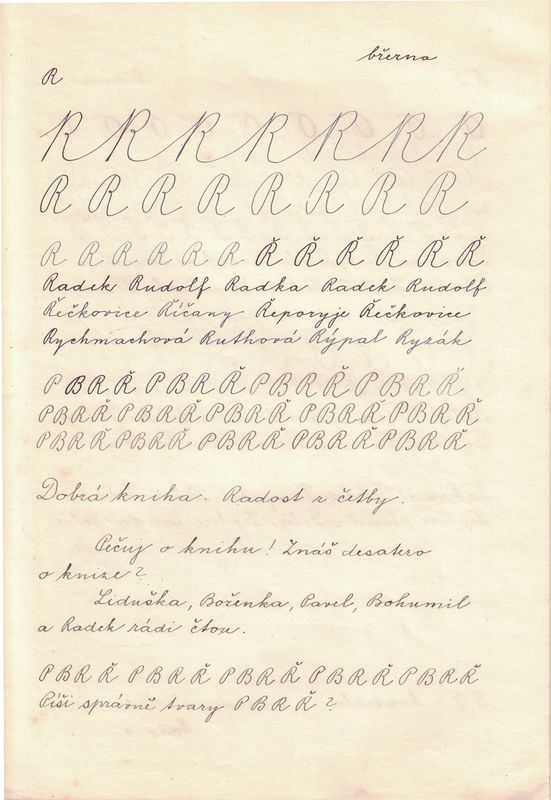 března
R
R R R R R R R
R R R R R R R R
R R R R R R Ř Ř Ř Ř Ř Ř
Radek Rudolf Radka Radek Rudolf
Řečkovice Říčany Řeporyje Řečkovice
Rychmachová Ruthová Rýpal Ryzák
P B R Ř P B R Ř P B R Ř P B R Ř
P B R Ř P B R Ř P B R Ř P B R Ř P B R Ř
P B R Ř P B R Ř P B R Ř P B R Ř P B R Ř
Dobrá kniha. Radost z četby.
Pečuj o knihu! Znáš desatero
o knize?
Liduška, Boženka, Pavel, Bohumil
a Radek rádi čtou.
P B R Ř P B R Ř P B R Ř P B R Ř P B R Ř
Píši správně tvary P B R Ř?